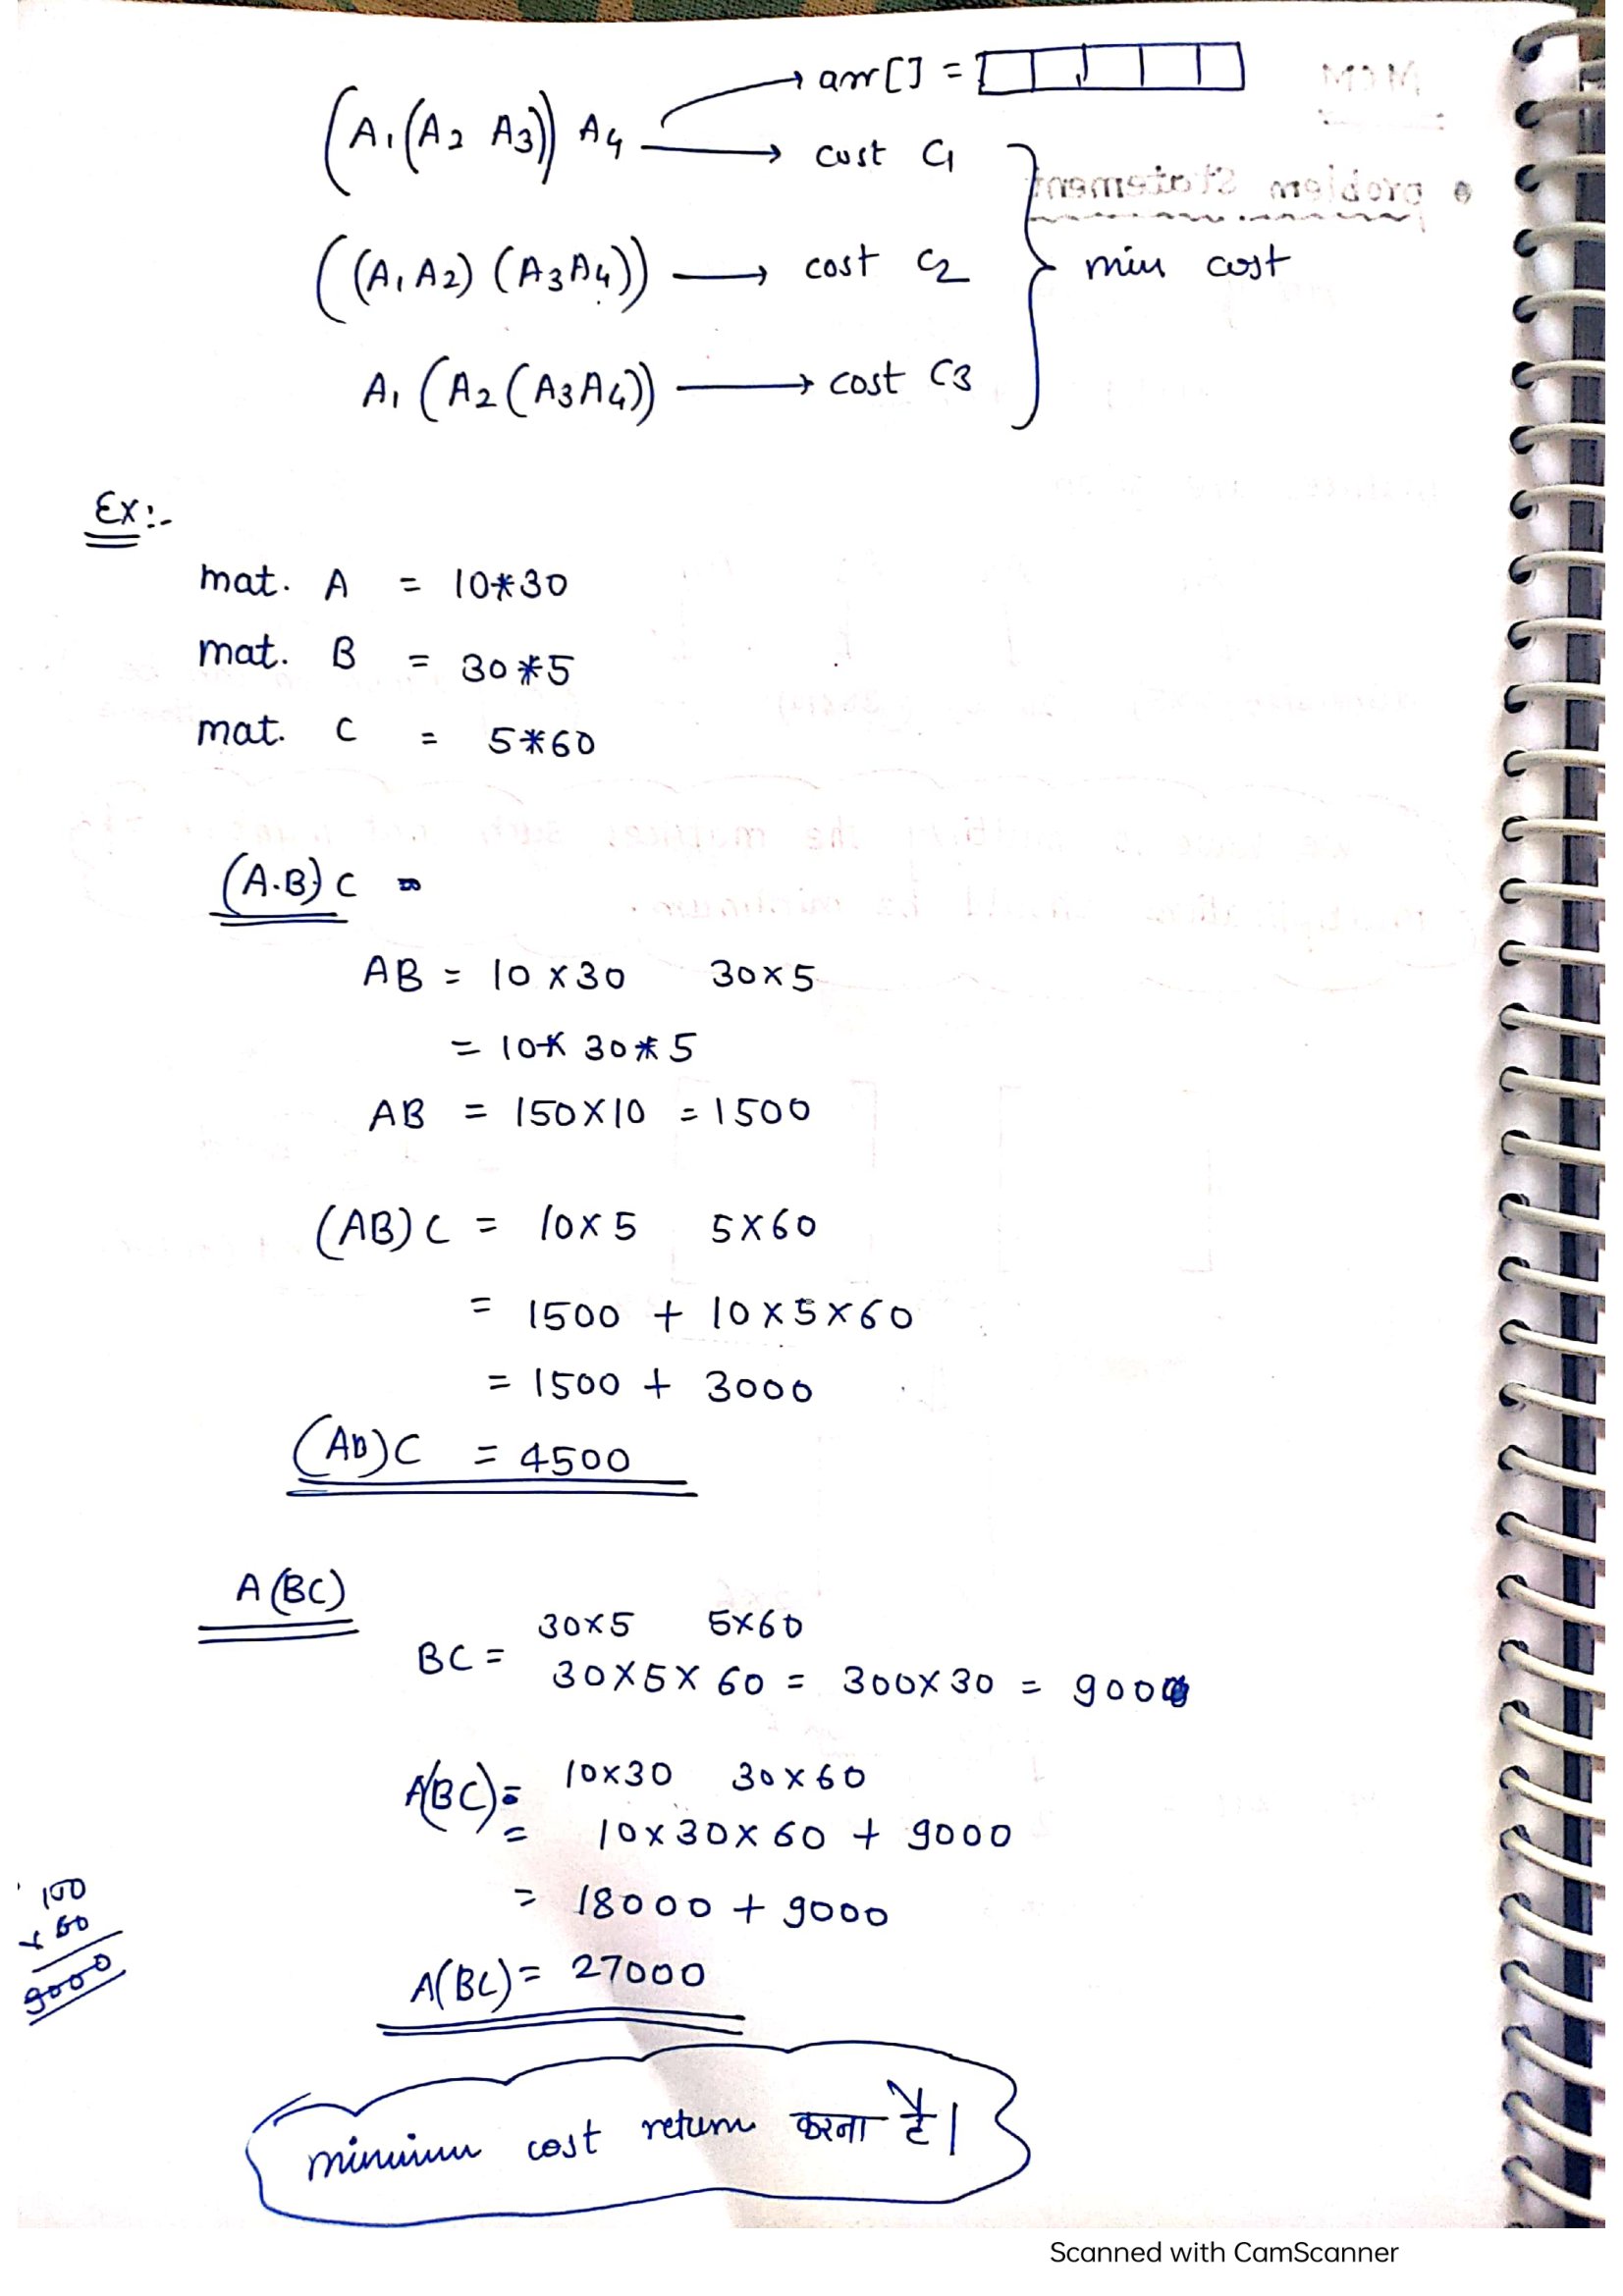 arr[] =
(A1(A2 A3)) A4 → cost C1
((A1A2) (A3A4)) → cost C2
min cost
A1(A2(A3A4)) → cost C3
Ex:-
mat. A = 10*30
mat. B = 30*5
mat. C = 5*60
(A.B) C =
AB = 10 x 30 30x5
= 10* 30*5
AB = 150X10 = 1500
(AB) C = 10x5 5X60
= 1500 + 10x5x60
= 1500 + 3000
(AB)C = 4500
A(BC)
30x5 5x60
BC =
30X5X60 = 300X30 = 9000
A(BC)= 10x30 30x60
= 10x30x60 + 9000
= 18000 + 9000
A(BC)= 27000
9000
minimum cost return करना है।
Scanned with CamScanner